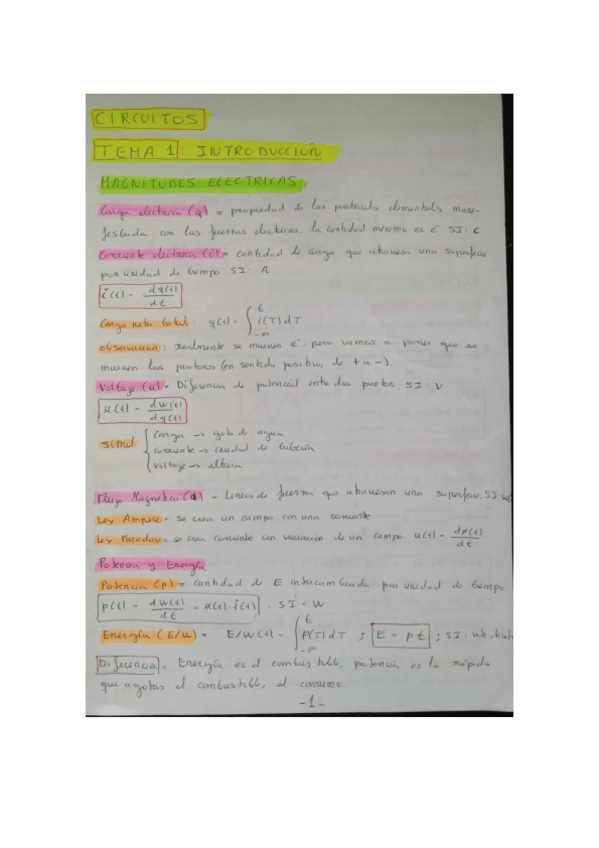 CIRCUITOS
TEMA 1: INTRODUCCIÓN
MAGNITUDES ELÉCTRICAS:
Carga eléctrica (q) = propiedad de las partículas elementales mani-
festada con las fuerzas eléctricas. la cantidad mínima es é SI: C
Corriente eléctrica (i) = cantidad de carga que atraviesa una superficie
por unidad de tiempo. SI: A
i(t) = dq(t)/dt
Carga neta total: q(t) = ∫_{-∞}^{t} i(T) dT
observación: realmente se mueven é, pero vamos a poner que se
mueven los protones (en sentido positivo, de + a -)
Voltaje (u) = Diferencia de potencial entre dos puntos SI: V
u(t) = dw(t)/dq(t)
Simil { Carga → gota de agua
corriente → caudal de tubería
Voltaje → altura.
Flujo Magnético (ϕ) = Líneas de fuerza que atraviesan una superficie. SI: wb
Ley Ampere - se crea un campo con una corriente
Ley Faraday - se crea corriente con variación de un campo. u(t) = dϕ(t)/dt
Potencia y Energía
Potencia (p) = cantidad de E intercambiada por unidad de tiempo
p(t) = dw(t)/dt = u(t)·i(t) . SI = W
Energía (E/W) = E/w(t) = ∫_{-∞}^{t} p(T) dT ; E = p·t ; SI: wh, kwh
Diferencia = Energía es el combustible, potencia es lo rápido
que agotas el combustible, el consumo.
-1-